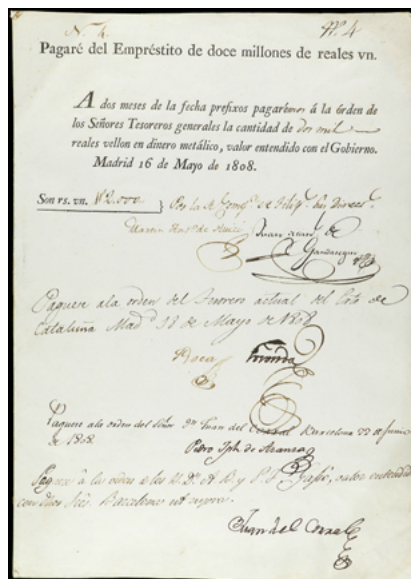 N. 4. Nº. 4
Pagaré del Empréstito de doce millones de reales vn.
A dos meses de la fecha prefixos pagarémos á la órden de
los Señores Tesoreros generales la cantidad de dos mil
reales vellon en dinero metálico, valor entendido con el Gobierno.
Madrid 16 de Mayo de 1808.
Son rs. vn. #2.000 Por la Rl. Comp.ª de Filip.s sus Direct.
Juan de
Gandasegui
Paguese ala orden del Tesorero actual del de
Cataluña Mad.d 18 de Mayo de 1808
Roca
Paguese ala orden del Señor Dn. Juan del Corral Barcelona 22 de Junio
de 1808.
Pedro Jph. de Aranza
Paguese à la orden de los D.n A. B. y P. F. Gassó, valor entendido
con dhos Sres. Barcelona ut supra.
Juan del Corral